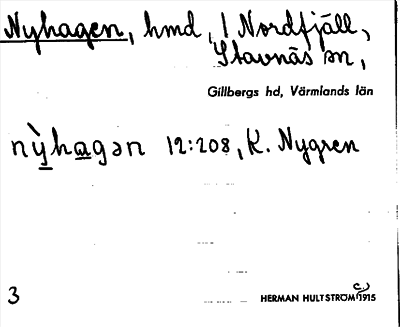 Nyhagen, hmd, i Nordfjäll,
Stavnäs sn,
Gillbergs hd, Värmlands län
nỳhagən 12:208, K. Nygren
3
HERMAN HULTSTRÖM c) 1915